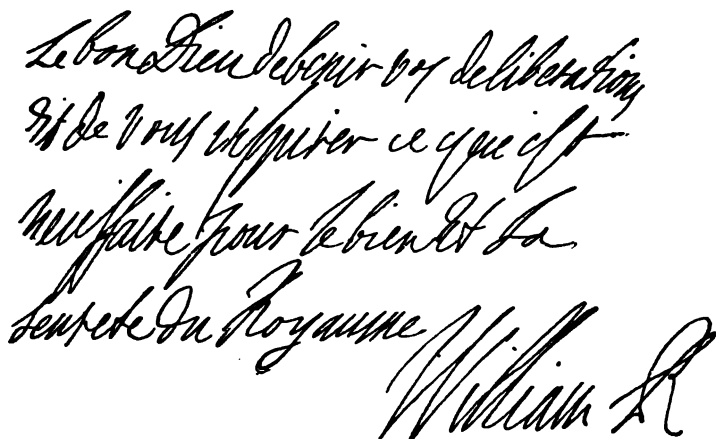 le bon Dieu de benir vos deliberations
et de vous inspirer ce qui est
necessaire pour le bien et la
seurete du Royaume
William R